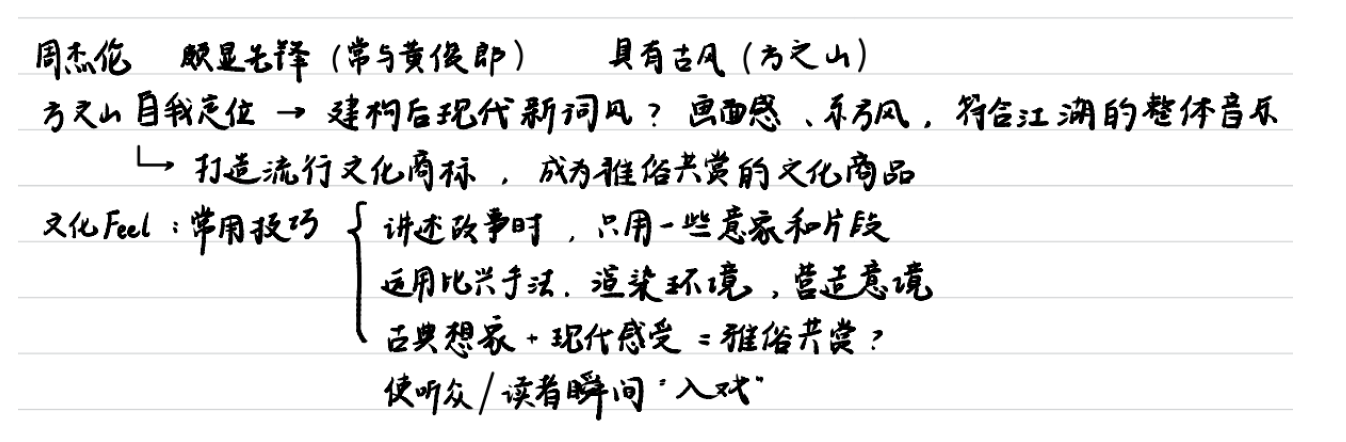 周杰伦 颇显先锋（常与黄俊郎） 具有古风（方文山）
方文山自我定位 → 建构后现代新词风？画面感、东方风，符合江湖的整体音乐
↳ 打造流行文化商标，成为雅俗共赏的文化商品
文化Feel：常用技巧 { 讲述故事时，只用一些意象和片段
运用比兴手法．渲染环境，营造意境
古典想象 + 现代感受 = 雅俗共赏？
使听众/读者瞬间“入戏”